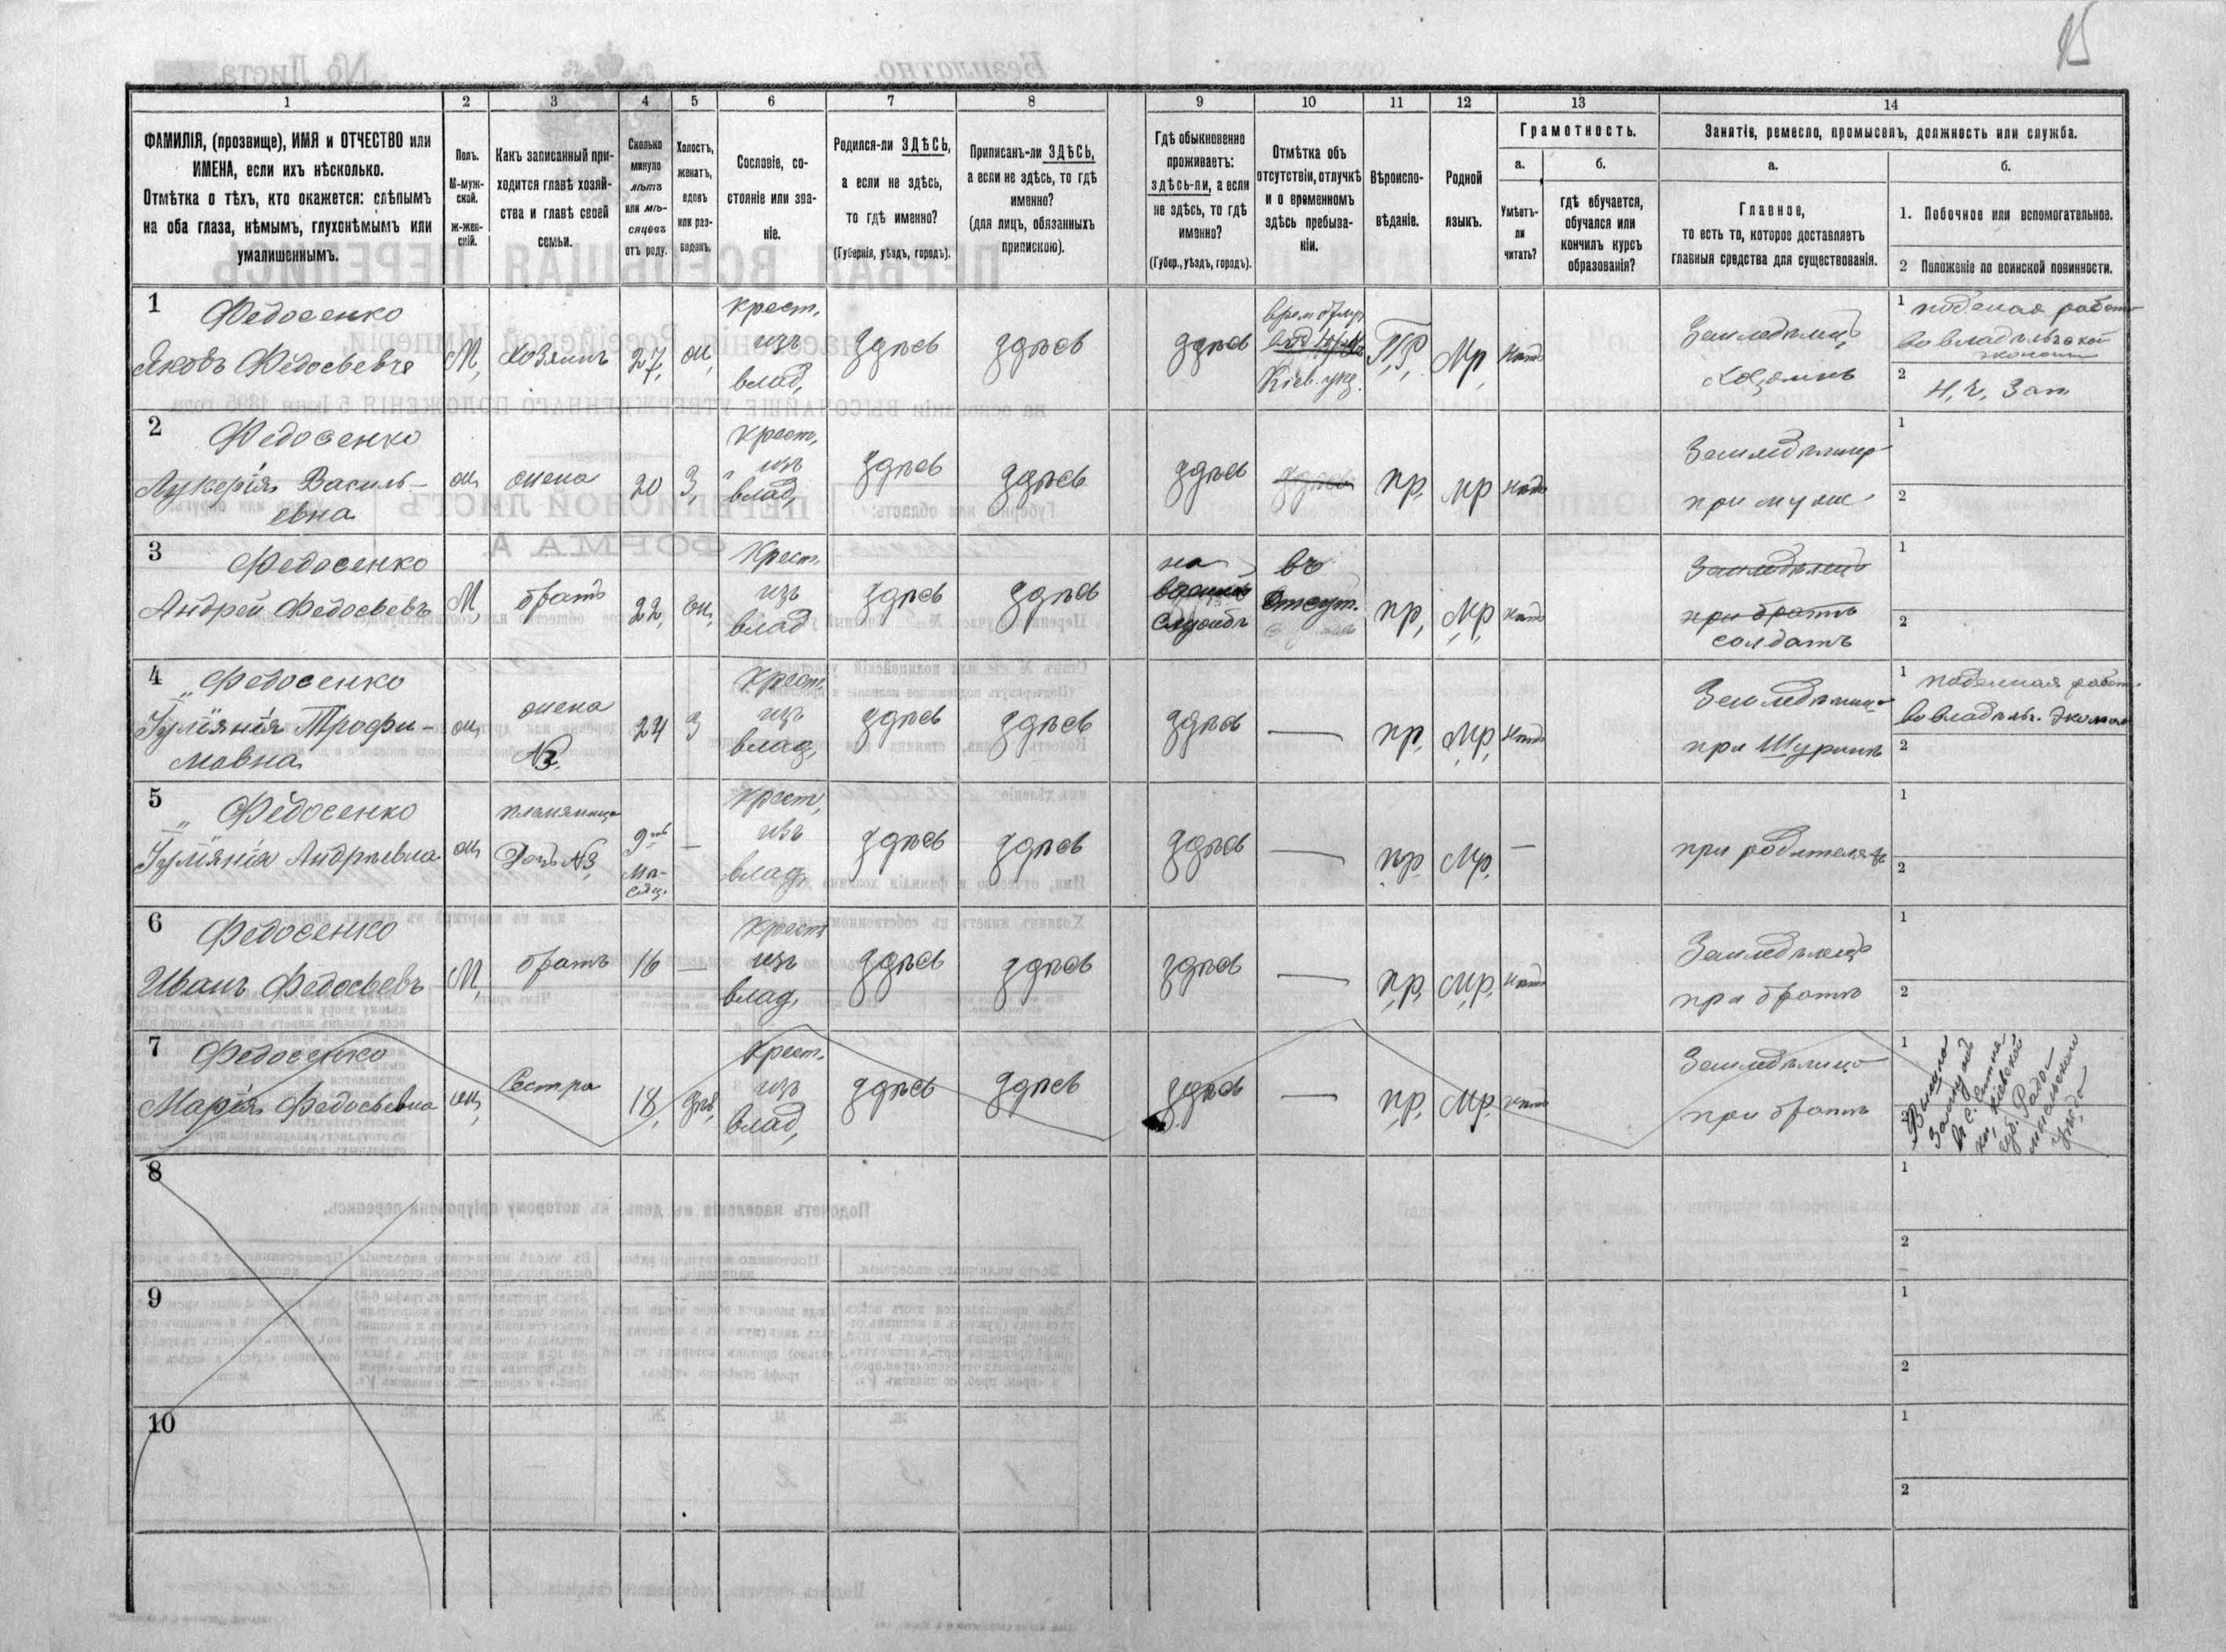 15
1
2
3
4
5
6
7
8
9
10
11
12
13
14
ФАМИЛІЯ, (прозвище), ИМЯ и ОТЧЕСТВО или
ИМЕНА, если ихъ нѣсколько.
Отмѣтка о тѣхъ, кто окажется: слѣпымъ
на оба глаза, нѣмымъ, глухонѣмымъ или
умалишеннымъ.
Полъ.
М-муж-
ской.
ж-жен-
скій.
Какъ записанный при-
ходится главѣ хозяй-
ства и главѣ своей
семьи.
Сколько
минуло
лѣтъ
или мѣ-
сяцевъ
отъ роду.
Холостъ,
женатъ,
вдовъ
или раз-
веденъ.
Сословіе, со-
стояніе или зва-
ніе.
Родился-ли ЗДѢСЬ,
а если не здѣсь,
то гдѣ именно?
(Губернія, уѣздъ, городъ).
Приписанъ-ли ЗДѢСЬ,
а если не здѣсь, то гдѣ
именно?
(для лицъ, обязанныхъ
припискою).
Гдѣ обыкновенно
проживаетъ:
здѣсь-ли, а если
не здѣсь, то гдѣ
именно?
(Губер., уѣздъ, городъ).
Отмѣтка объ
отсутствіи, отлучкѣ
и о временномъ
здѣсь пребыва-
ніи.
Вѣроиспо-
вѣданіе.
Родной
языкъ.
Грамотность.
а.
Умѣетъ-
ли
читать?
б.
гдѣ обучается,
обучался или
кончилъ курсъ
образованія?
Занятіе, ремесло, промыселъ, должность или служба.
а.
Главное,
то есть то, которое доставляетъ
главныя средства для существованія.
б.
1. Побочное или вспомогательное.
2 Положеніе по воинской повинности.
1
Федосенко
Яковъ Федосьевъ
М,
хозяинъ
27,
ж,
крест,
изъ
влад,
здѣсь
здѣсь
здѣсь
Кіев. уѣз.
Пр,
Мр,
нѣтъ
Земледѣлец,
хозяинъ
1
поденая работ
во владѣльческой
экономіи
2
Н, ч, Зап
2
Федосенко
Лукерія Василь-
евна
ж,
жена
20
З,
крест,
изъ
влад,
здѣсь
здѣсь
здѣсь
здѣсь
пр,
мр
нѣтъ
Земледѣлец
при мужѣ
1
2
3
Федосенко
Андрей Федосьевъ
М,
братъ
22,
ж,
Крест.
изъ
влад
здѣсь
здѣсь
на
военной
службѣ
въ
отсут.
пр,
Мр,
нѣтъ
Земледѣлецъ
при братѣ
солдатъ
1
2
4
Федосенко
Іуліянія Трофи-
мовна
ж,
жена
№3.
24
З
Крест,
изъ
влад,
здѣсь
здѣсь
здѣсь
—
пр,
Мр,
нѣтъ
Земледѣлец
при Шуринѣ
1
поденная работ.
во владѣльч. эконом
2
5
Федосенко
Іуліянія Андрѣевна
ж,
племяница
Дочь №3,
9-ть
мѣ-
сяц.
—
Крест,
изъ
влад,
здѣсь
здѣсь
здѣсь
—
пр,
Мр.
—
при родителяхъ
1
2
6
Федосенко
Иванъ Федосьевъ
М,
братъ
16
—
Крест
изъ
влад,
здѣсь
здѣсь
здѣсь
—
пр,
Мр.
нѣтъ
Земледѣлецъ
при братѣ
1
2
7
Федосенко
Марія Федосьевна
ж,
Сестра
18,
дѣв,
Крест.
изъ
влад,
здѣсь
здѣсь
здѣсь
—
пр,
Мр.
нѣтъ
Земледѣлец
при братѣ
1
2
Вышла
замужъ
в с. Ситня
ки, Кіевской
губ. Радо
мысльскаго
уѣзда
8
1
2
9
1
2
10
1
2